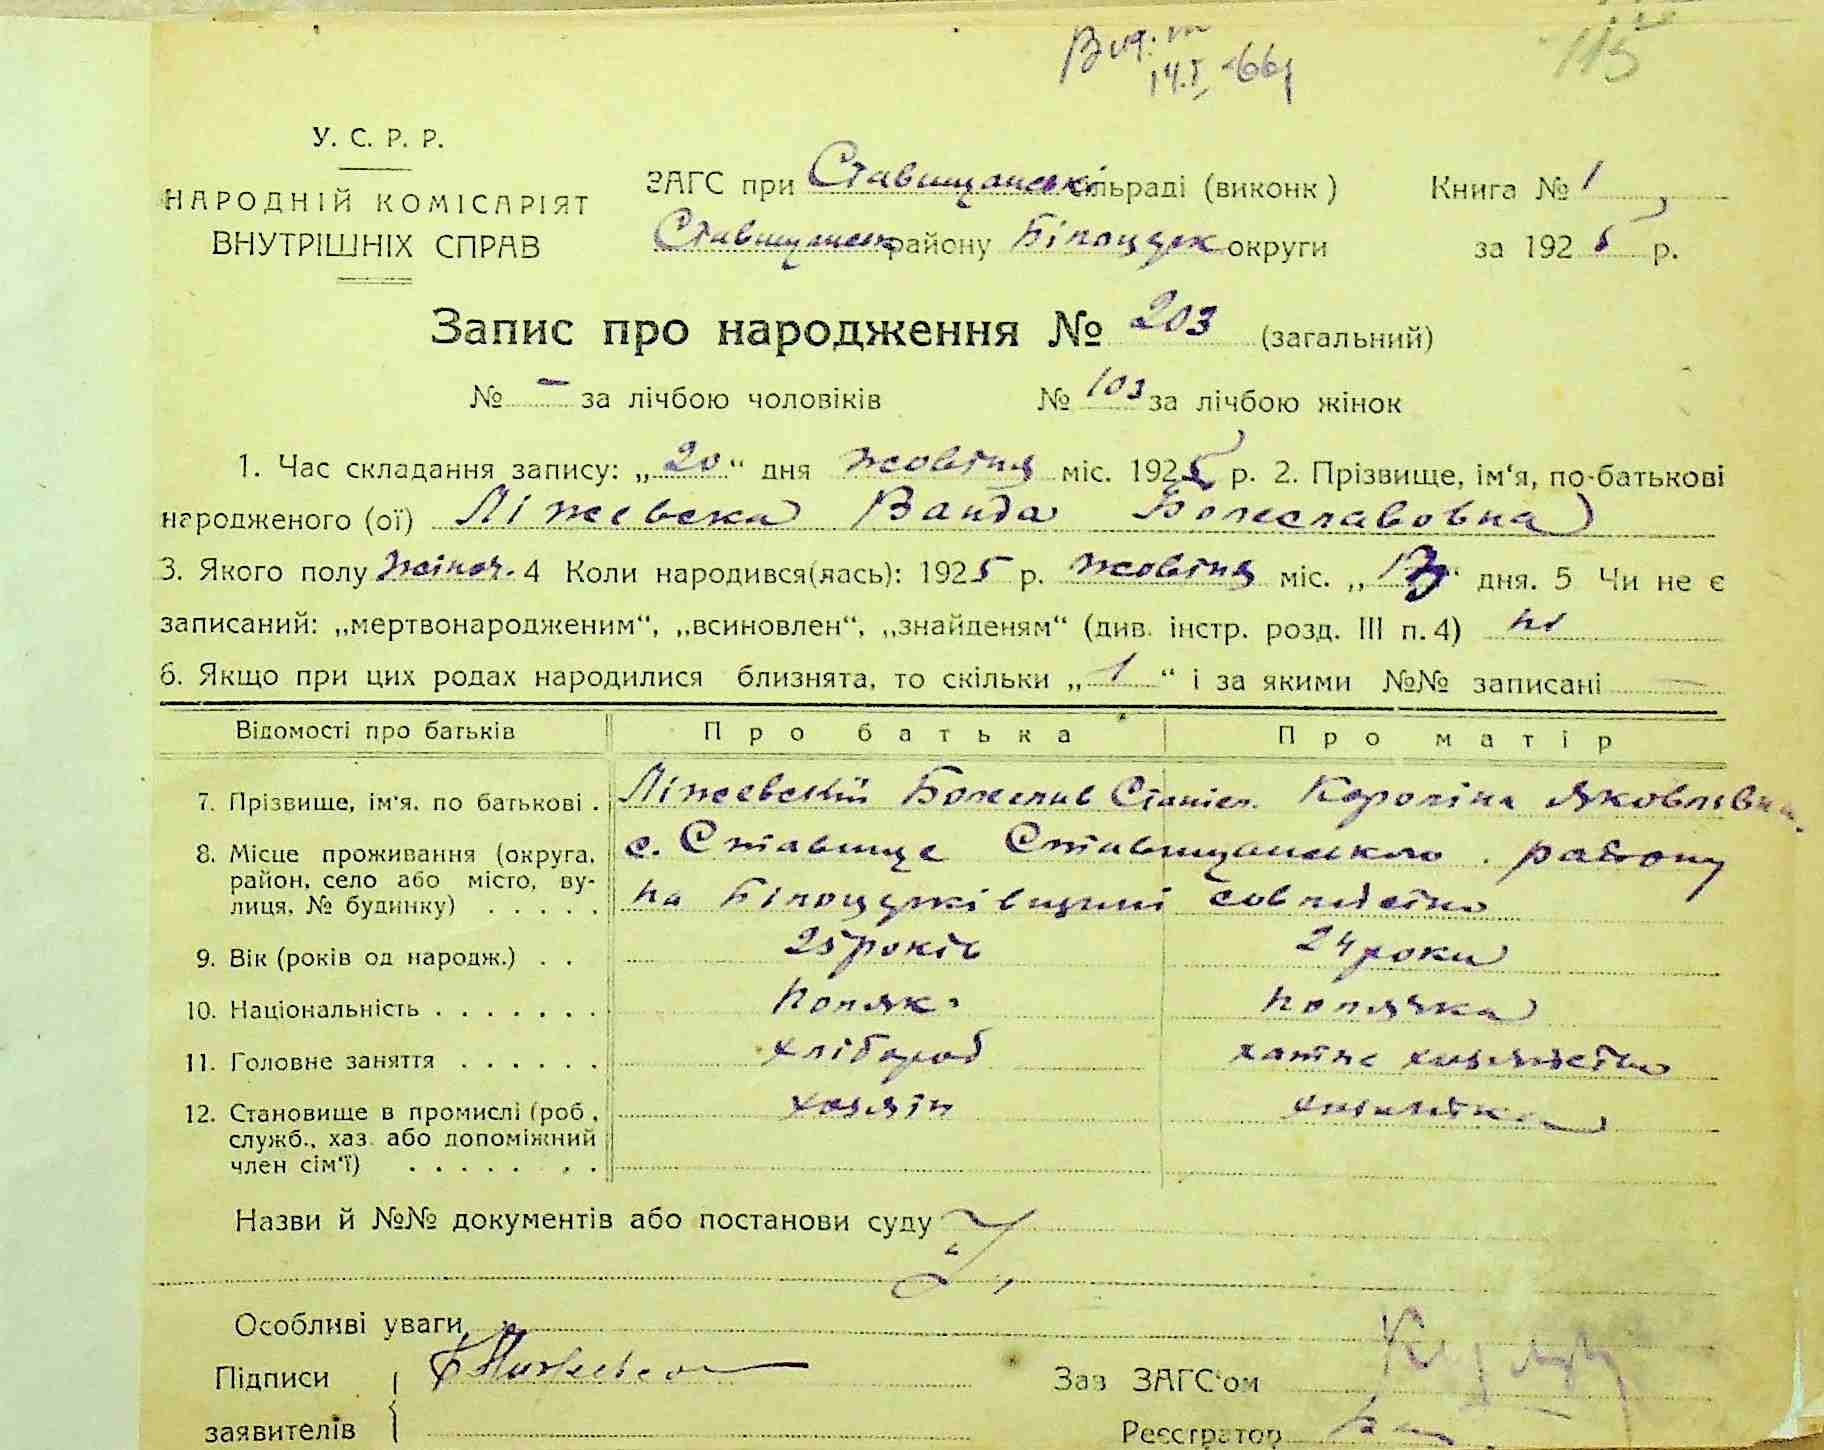 115
14.I.-66
У. С. Р. Р.
НАРОДНІЙ КОМІСАРІЯТ
ВНУТРІШНІХ СПРАВ
ЗАГС при Ставищанські сільраді (виконк)
Книга № 1
Ставищанськ району Білоцерк округи
за 1925 р.
Запис про народження № 203 (загальний)
№ — за лічбою чоловіків № 103 за лічбою жінок
1. Час складання запису: „20“ дня жовтня міс. 1925 р. 2. Прізвище, ім‘я, по-батькові
народженого (ої) Ліжевска Ванда Болеславовна
3. Якого полу жіноч. 4 Коли народився(лась): 1925 р. жовтня міс. „ “ дня. 5 Чи не є
записаний: „мертвонародженим“, „всиновлен“, „знайденям“ (див. інстр. розд. III п. 4) ні
6. Якщо при цих родах народилися близнята, то скільки „1“ і за якими №№ записані —
Відомості про батьків Про батька Про матір
7. Прізвище, ім‘я, по батькові . Ліжевский Болеслав Станісл. Кароліна Яковлівна.
8. Місце проживання (округа, район, село або місто, ву-
лиця, № будинку) . . . . . с. Ставище Ставищанського району
на Білоцерківщині
9. Вік (років од народж.) . . 25 років 24 роки
10. Національність . . . . . . . Поляк Полячка
11. Головне заняття . . . . . . хлібороб хатнє хазяйство
12. Становище в промислі (роб., служб., хаз. або допоміжний
член сім‘ї) . . . . . . . . хазяін хазяйка
Назви й №№ документів або постанови суду
Особливі уваги
Підписи
заявителів
Зав ЗАГС‘ом
Реєстратор